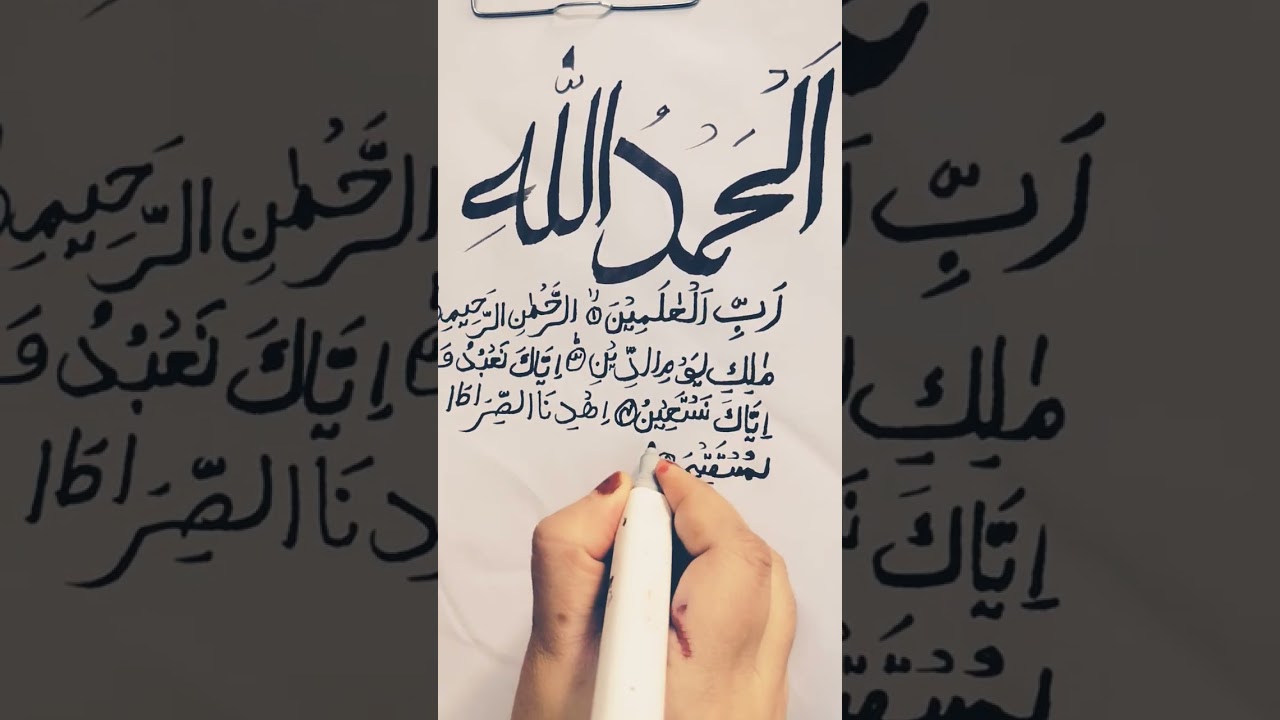 اَلْحَمْدُ اللّٰهِ
رَبِّ اَلْعٰلَمِيْنَ ۙ۱ الرَّحْمٰنِ الرَّحِيْمِ
مٰلِكِ يَوْمِ الدِّيْنِ ۳ اِيَّاكَ نَعْبُدُ وَ
اِيَّاكَ نَسْتَعِيْنُ ۴ اِهْدِ نَا الصِّرَاطَا
لْمُسْتَقِيْمَ